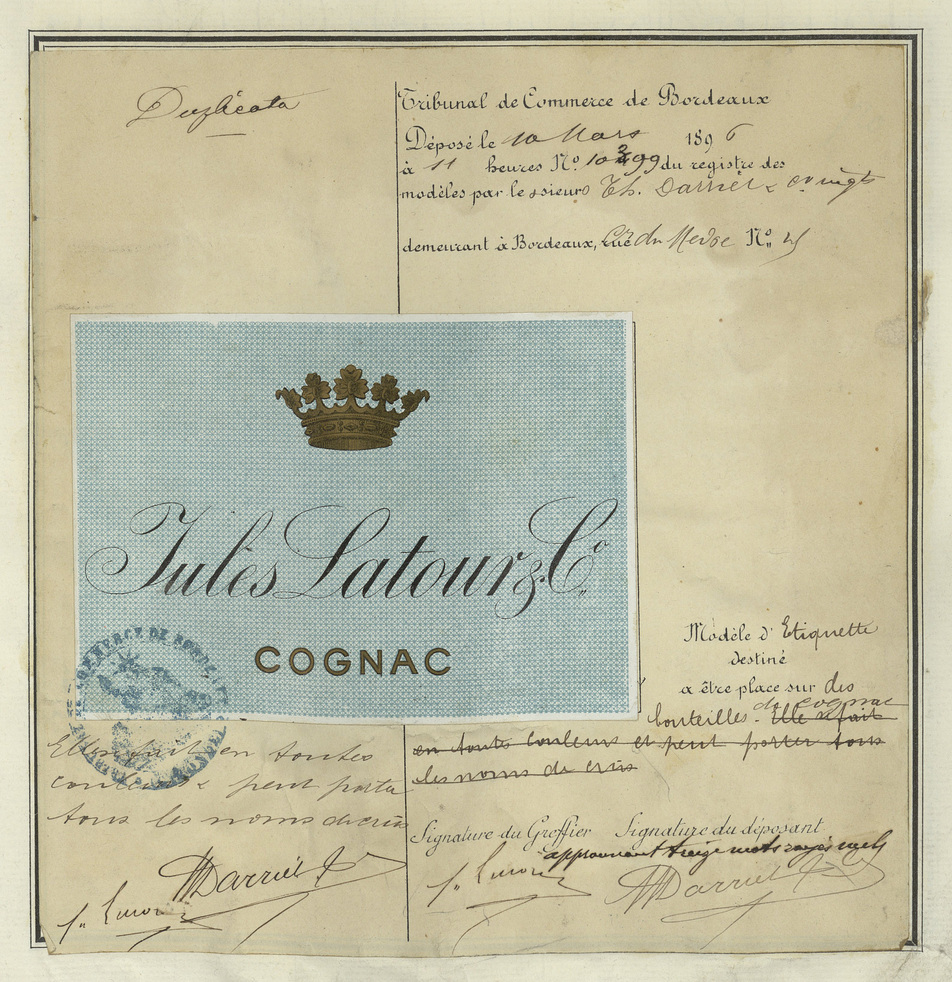 Duplicata
Tribunal de Commerce de Bordeaux
Déposé le 10 Mars 1896
à 11 heures No. 10299 du registre des
modèles par le ssieurs Th. Darriet &
demeurant à Bordeaux, Rue du Médoc No.
Jules Latour & Co.
COGNAC
COMMERCE DE BORDEAUX
Modèle d'Etiquette
destiné
à être place sur des
bouteilles de cognac. Elle se fait
en toutes couleurs et peut porter tous
les noms de crûs
Elle se fait en toutes
couleurs & peut porter
tous les noms de crûs
Signature du Greffier Signature du déposant
approuvant treize mots rayés nuls
Darriet
Darriet